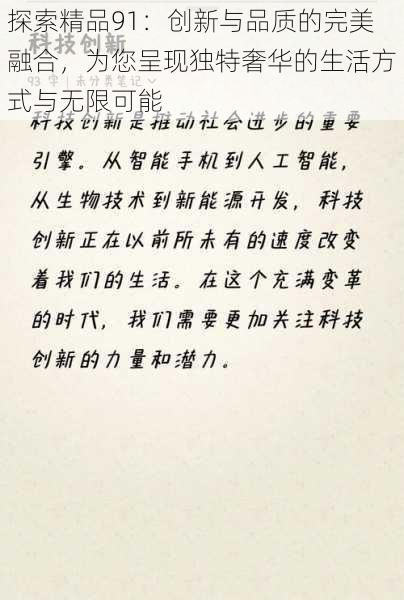 探索精品91：创新与品质的完美
融合，为您呈现独特奢华的生活方
式与无限可能
科技创新
93 字 | 未分类笔记
科技创新是推动社会进步的重要
引擎。从智能手机到人工智能，
从生物技术到新能源开发，科技
创新正在以前所未有的速度改变
着我们的生活。在这个充满变革
的时代，我们需要更加关注科技
创新的力量和潜力。